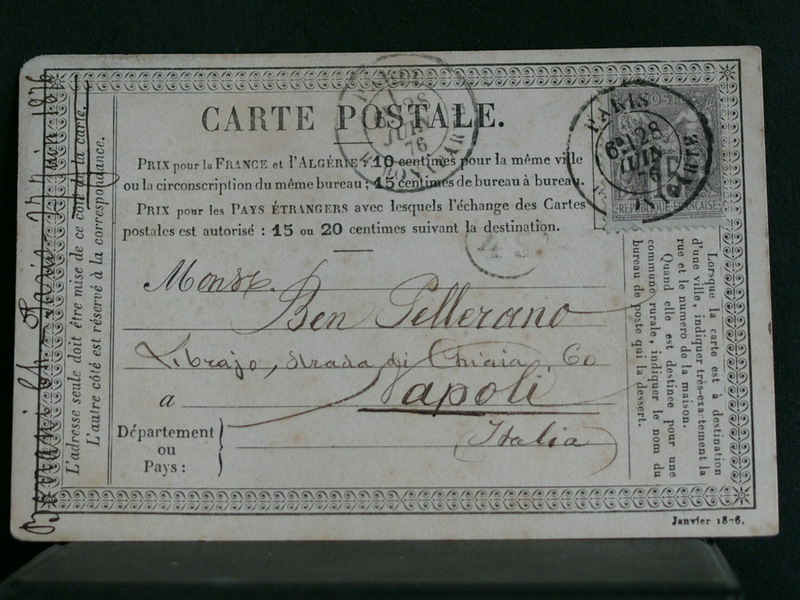 CARTE POSTALE.
PRIX pour la FRANCE et l'ALGÉRIE : 10 centimes pour la même ville
ou la circonscription du même bureau ; 15 centimes de bureau à bureau.
PRIX pour les PAYS ÉTRANGERS avec lesquels l'échange des Cartes
postales est autorisé : 15 ou 20 centimes suivant la destination.
Monsr.
Ben Pellerano
Librajo, strada di Chiaia, 60
a Napoli
Italia
Département
ou
Pays :
L'adresse seule doit être mise de ce côté de la carte.
L'autre côté est réservé à la correspondance.
Juin 1876
Lorsque la carte est à destination
d'une ville, indiquer très-exactement la
rue et le numéro de la maison.
Quand elle est destinée pour une
commune rurale, indiquer le nom du
bureau de poste qui la dessert.
PARIS
6e 28
JUIN
76
POSTE
REPUBLIQUE FRANÇAISE
JUIN
76
Janvier 1876.